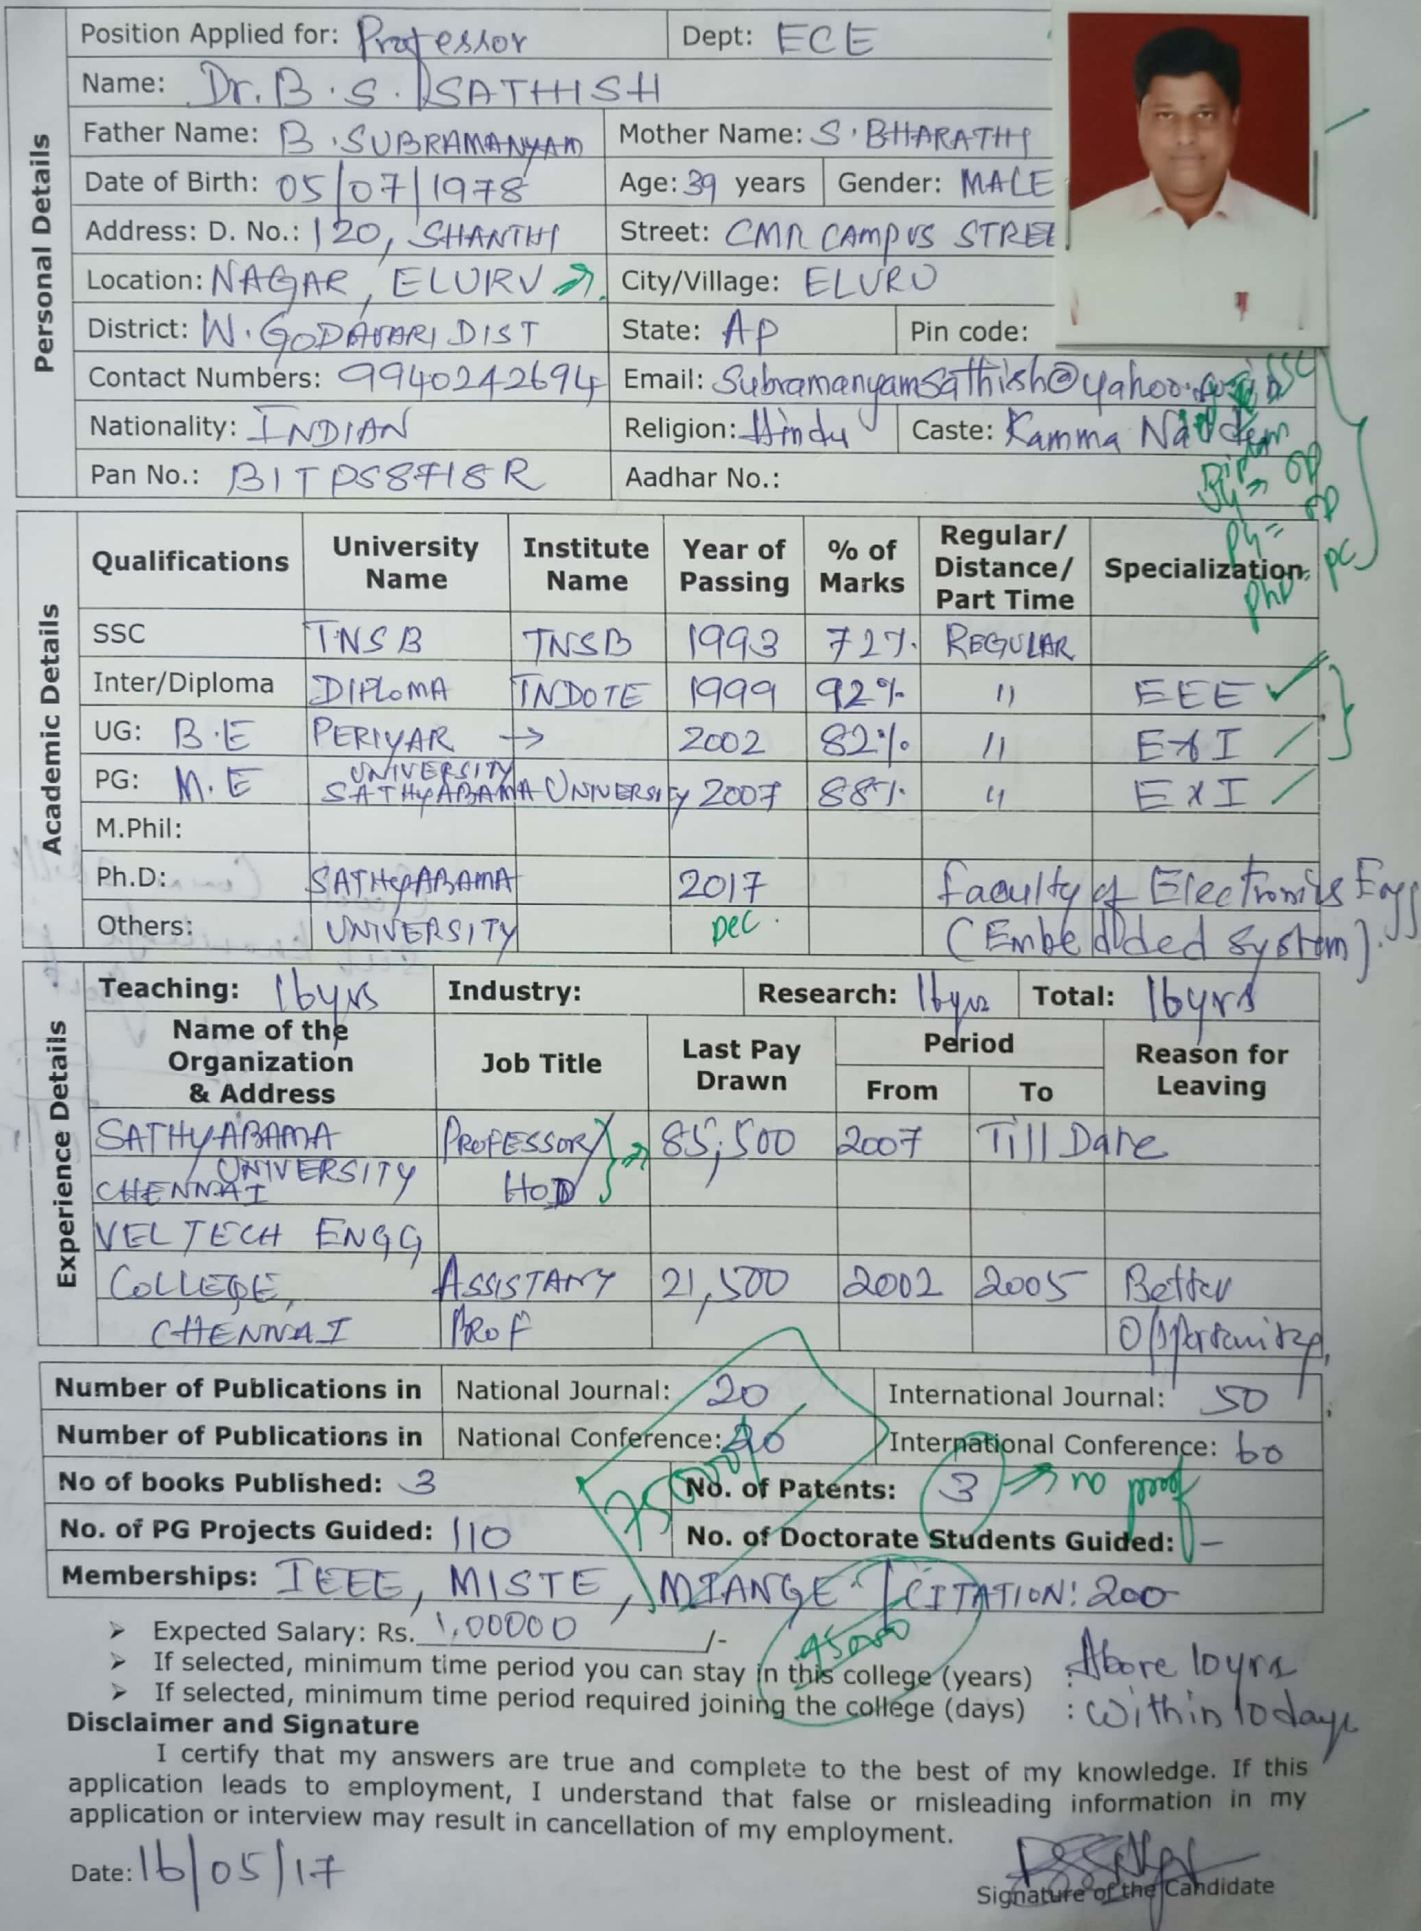 Position Applied for: Professor Dept: ECE
Name: Dr. B. S. SATHISH
Father Name: B. SUBRAMANYAM Mother Name: S. BHARATHI
Date of Birth: 05/07/1978 Age: 39 years Gender: MALE
Address: D. No.: 120, SHANTHI Street: CMR CAMPUS STREE
Location: NAGAR, ELURU City/Village: ELURU
District: W. GODAVARI DIST State: AP Pin code:
Contact Numbers: 9940242694 Email: Subramanyamsathish@yahoo.
SSC
Nationality: INDIAN Religion: Hindu Caste: Kamma
Pan No.: BITPS8718R Aadhar No.:
Personal Details
Qualifications University Name Institute Name Year of Passing % of Marks Regular/ Distance/ Part Time Specialization
PhD PC
SSC TNSB TNSB 1993 72%. REGULAR
Inter/Diploma DIPLOMA TNDOTE 1999 92% " EEE
UG: B.E PERIYAR → 2002 82% " E&I
UNIVERSITY
PG: M.E SATHYABAMA UNIVERSITY 2007 88% " E&I
M.Phil:
Ph.D: SATHYABAMA 2017 Faculty of Electronics Engg
Others: UNIVERSITY Dec. (Embedded System).
Academic Details
Teaching: 16yrs Industry: Research: 16yrs Total: 16yrs
Name of the Organization & Address Job Title Last Pay Drawn Period Reason for Leaving
From To
SATHYABAMA PROFESSOR/ 85,500 2007 Till Date
UNIVERSITY
CHENNAI HOD
VELTECH ENGG
COLLEGE, ASSISTANT 21,500 2002 2005 Better
CHENNAI PROF Opportunity,
Experience Details
Number of Publications in National Journal: 20 International Journal: 50
Number of Publications in National Conference: International Conference: 60
No of books Published: 3 No. of Patents: 3 → no proof
75000/-
No. of PG Projects Guided: 110 No. of Doctorate Students Guided: -
Memberships: IEEE, MISTE, MIANGE. CITATION: 200
➤ Expected Salary: Rs. 1,00000 /-
95000
➤ If selected, minimum time period you can stay in this college (years) : Above 10yrs
➤ If selected, minimum time period required joining the college (days) : Within 10 days
Disclaimer and Signature
I certify that my answers are true and complete to the best of my knowledge. If this
application leads to employment, I understand that false or misleading information in my
application or interview may result in cancellation of my employment.
Date: 16/05/17
Signature of the Candidate